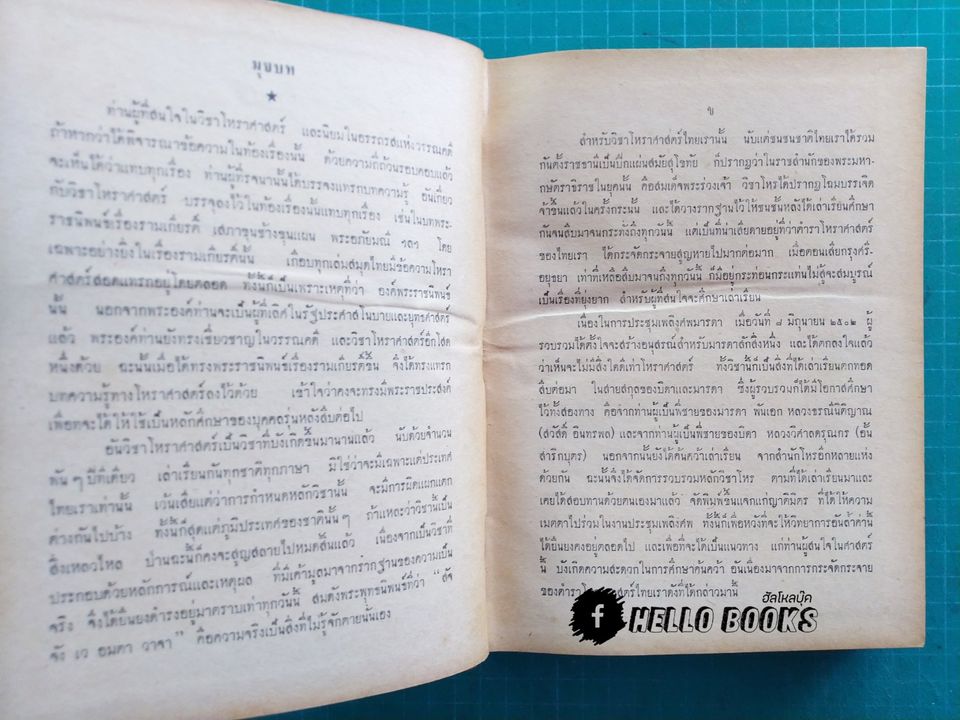 มุขบท
ท่านผู้ที่สนใจในวิชาโหราศาสตร์ และนิยมในอรรถรสแห่งวรรณคดี
ถ้าหากว่าได้พิจารณาข้อความในท้องเรื่องนั้น ด้วยความถี่ถ้วนรอบคอบแล้ว
จะเห็นได้ว่าแทบทุกเรื่อง ท่านผู้ที่รจนานั้นได้บรรจงแทรกบทความรู้ อันเกี่ยว
กับวิชาโหราศาสตร์ บรรจุลงไว้ในท้องเรื่องนั้นแทบทุกเรื่อง เช่นในบทพระ-
ราชนิพนธ์เรื่องรามเกียรติ์ เสภาขุนช้างขุนแผน พระอภัยมณี ฯลฯ โดย
เฉพาะอย่างยิ่งในเรื่องรามเกียรติ์นั้น เกือบทุกเล่มสมุดไทยมีข้อความโหรา
ศาสตร์สอดแทรกอยู่โดยตลอด ทั้งนี้ก็เป็นเพราะเหตุที่ว่า องค์พระราชนิพนธ์
นั้น นอกจากพระองค์ท่านจะเป็นผู้ที่เลิศในรัฐประศาสโนบายและยุทธศาสตร์
แล้ว พระองค์ท่านยังทรงเชี่ยวชาญในวรรณคดี และวิชาโหราศาสตร์อีกโสด
หนึ่งด้วย ฉะนั้นเมื่อได้ทรงพระราชนิพนธ์เรื่องรามเกียรติ์ขึ้น จึงได้ทรงแทรก
บทความรู้ทางโหราศาสตร์ลงไว้ด้วย เข้าใจว่าคงจะทรงมีพระราชประสงค์
เพื่อที่จะได้ให้ใช้เป็นหลักศึกษาของบุคคลรุ่นหลังสืบต่อไป
อันวิชาโหราศาสตร์เป็นวิชาที่บังเกิดขึ้นมานานแล้ว นับด้วยจำนวน
พัน ๆ ปีทีเดียว เล่าเรียนกันทุกชาติทุกภาษา มิใช่ว่าจะมีเฉพาะแต่ประเทศ
ไทยเราเท่านั้น เว้นเสียแต่ว่าการกำหนดหลักวิชานั้น จะมีการผิดแผกแตก
ต่างกันไปบ้าง ทั้งนี้ก็สุดแต่ภูมิประเทศของชาตินั้น ๆ ถ้าแหละว่าวิชานี้เป็น
สิ่งเหลวไหล ป่านฉะนี้ก็คงจะสูญสลายไปหมดสิ้นแล้ว เนื่องจากเป็นวิชาที่
ประกอบด้วยหลักการณ์และเหตุผล ที่มีเค้ามูลมาจากรากฐานของความเป็น
จริง จึงได้ยืนยงดำรงอยู่มาตราบเท่าทุกวันนี้ สมดังพระพุทธนิพนธ์ที่ว่า “ สัจ
จัง เว อมตา วาจา ” คือความจริงเป็นสิ่งที่ไม่รู้จักตายนั้นเอง
ข
สำหรับวิชาโหราศาสตร์ไทยเรานั้น นับแต่ชนชนชาติไทยเราได้รวม
กันตั้งราชธานีเป็นปึกแผ่นสมัยสุโขทัย ก็ปรากฏว่าในราชสำนักของพระมหา-
กษัตราธิราชในยุคนั้น คือสมเด็จพระร่วงเจ้า วิชาโหรได้ปรากฏโฉมบรรเจิด
จ้าขึ้นแล้วในครั้งกระนั้น และได้วางรากฐานไว้ให้ชนชั้นหลังได้เล่าเรียนศึกษา
กันจนสืบมาจนกระทั่งถึงทุกวันนี้ แต่เป็นที่น่าเสียดายอยู่ที่ว่าตำราโหราศาสตร์
ของไทยเรา ได้กระจัดกระจายสูญหายไปมากต่อมาก เมื่อคอนเสียกรุงศรี-
อยุธยา เท่าที่เหลือสืบมาจนถึงทุกวันนี้ ก็มีอยู่กระท่อนกระแท่นไม่สู้จะสมบูรณ์
เป็นเรื่องที่ยุ่งยาก สำหรับผู้ที่สนใจจะศึกษาเล่าเรียน
เนื่องในการประชุมเพลิงศพมารดา เมื่อวันที่ ๗ มิถุนายน ๒๕๐๒ ผู้
รวบรวมได้ตั้งใจจะสร้างอนุสรณ์สำหรับมารดาสักสิ่งหนึ่ง และได้ตกลงใจแล้ว
ว่าเห็นจะไม่มีสิ่งใดดีเท่าโหราศาสตร์ ทั้งวิชานี้ก็เป็นสิ่งที่ได้เล่าเรียนตกทอด
สืบต่อมา ในสายสกุลของบิดาและมารดา ซึ่งผู้รวบรวมก็ได้มีโอกาสศึกษา
ไว้ทั้งสองทาง คือจากท่านผู้เป็นพี่ชายของมารดา พันเอก หลวงธรณีนิติญาณ
(สวัสดิ์ อินทรพล) และจากท่านผู้เป็นพี่ชายของบิดา หลวงวิศาลดรุณกร (อั้น
สาริกบุตร) นอกจากนั้นยังได้ค้นคว้าเล่าเรียน จากสำนักโหรอีกหลายแห่ง
ด้วยกัน ฉะนั้นจึงได้จัดการรวบรวมหลักวิชาโหร ตามที่ได้เล่าเรียนมาและ
เคยได้สอบทานด้วยตนเองมาแล้ว จัดพิมพ์ขึ้นแจกแก่ญาติมิตร ที่ได้ให้ความ
เมตตาไปร่วมในงานประชุมเพลิงศพ ทั้งนี้ก็เพื่อหวังที่จะให้วิทยาการอันล้ำค่านี้
ได้ยืนยงคงอยู่ตลอดไป และเพื่อที่จะได้เป็นแนวทาง แก่ท่านผู้สนใจในศาสตร์
นี้ บังเกิดความสะดวกในการศึกษาค้นคว้า อันเนื่องมาจากการกระจัดกระจาย
ของตำราโหราศาสตร์ไทยเราดังที่ได้กล่าวมานี้
ฮัลโหลบุ๊ค
f HELLO BOOKS